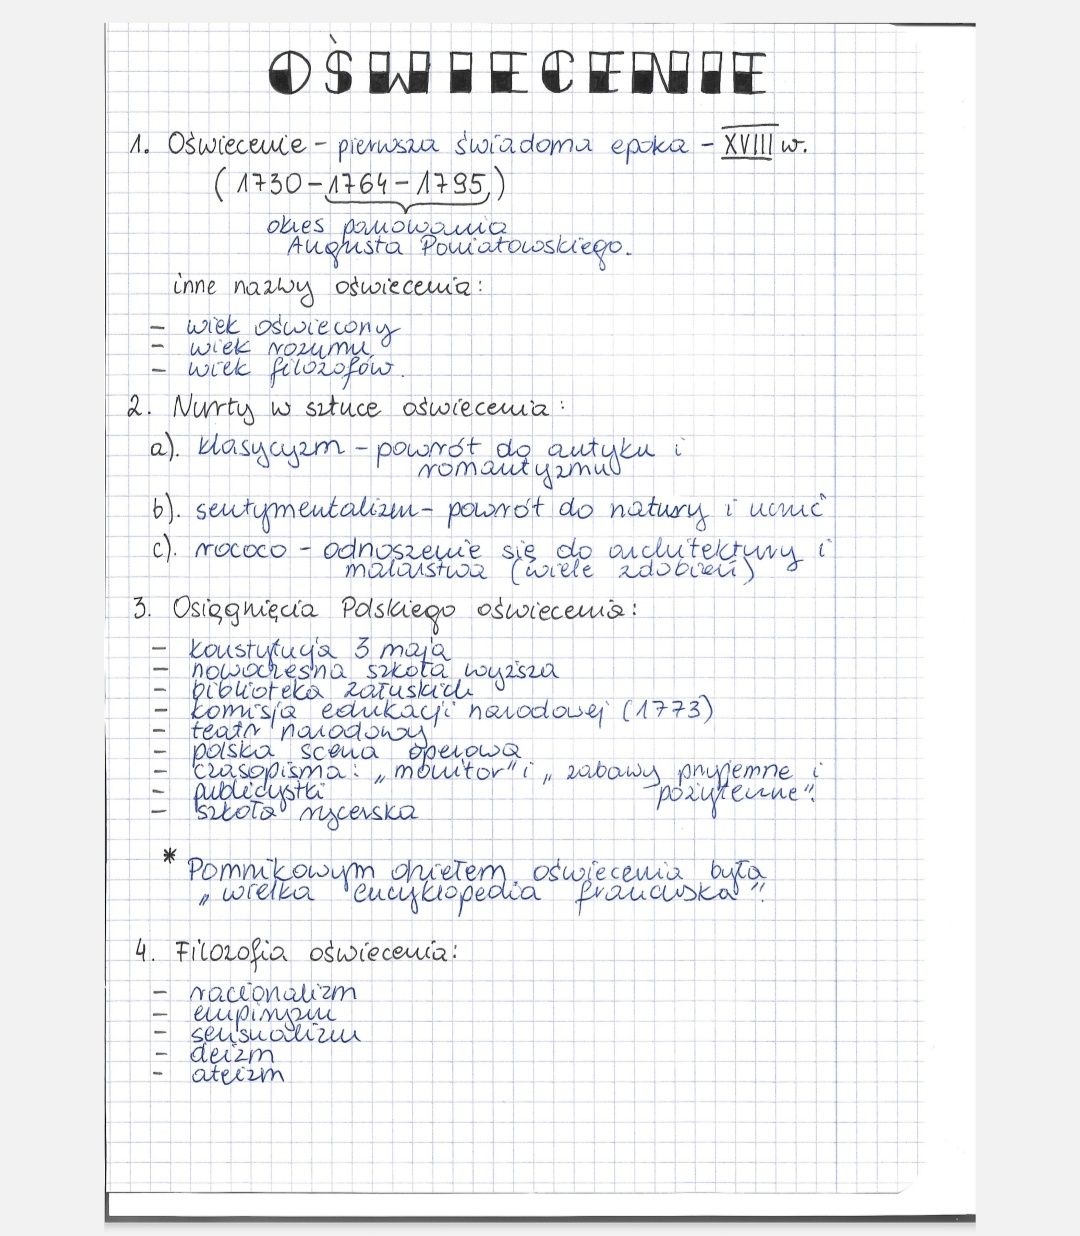 OŚWIECENIE
1. Oświecenie - pierwsza świadoma epoka - XVIII w.
(1730-1764-1795)
okres panowania
Augusta Poniatowskiego.
inne nazwy oświecenia:
- wiek oświecony
- wiek rozumu
- wiek filozofów.
2. Nurty w sztuce oświecenia:
a). klasycyzm - powrót do antyku i
romantyzmu
b). sentymentalizm - powrót do natury i uczuć
c). rococo - odnoszenie się do architektury i
malarstwa (wiele zdobień)
3. Osiągnięcia Polskiego oświecenia:
- konstytucja 3 maja
- nowoczesna szkoła wyższa
- biblioteka załuskich
- komisja edukacji narodowej (1773)
- teatr narodowy
- polska scena operowa
- czasopisma: „monitor" i „zabawy przyjemne i
pożyteczne".
- publicystki
- szkoła rycerska
* Pomnikowym dziełem oświecenia była
„wielka encyklopedia francuska".
4. Filozofia oświecenia:
- racjonalizm
- empiryzm
- sensualizm
- deizm
- ateizm